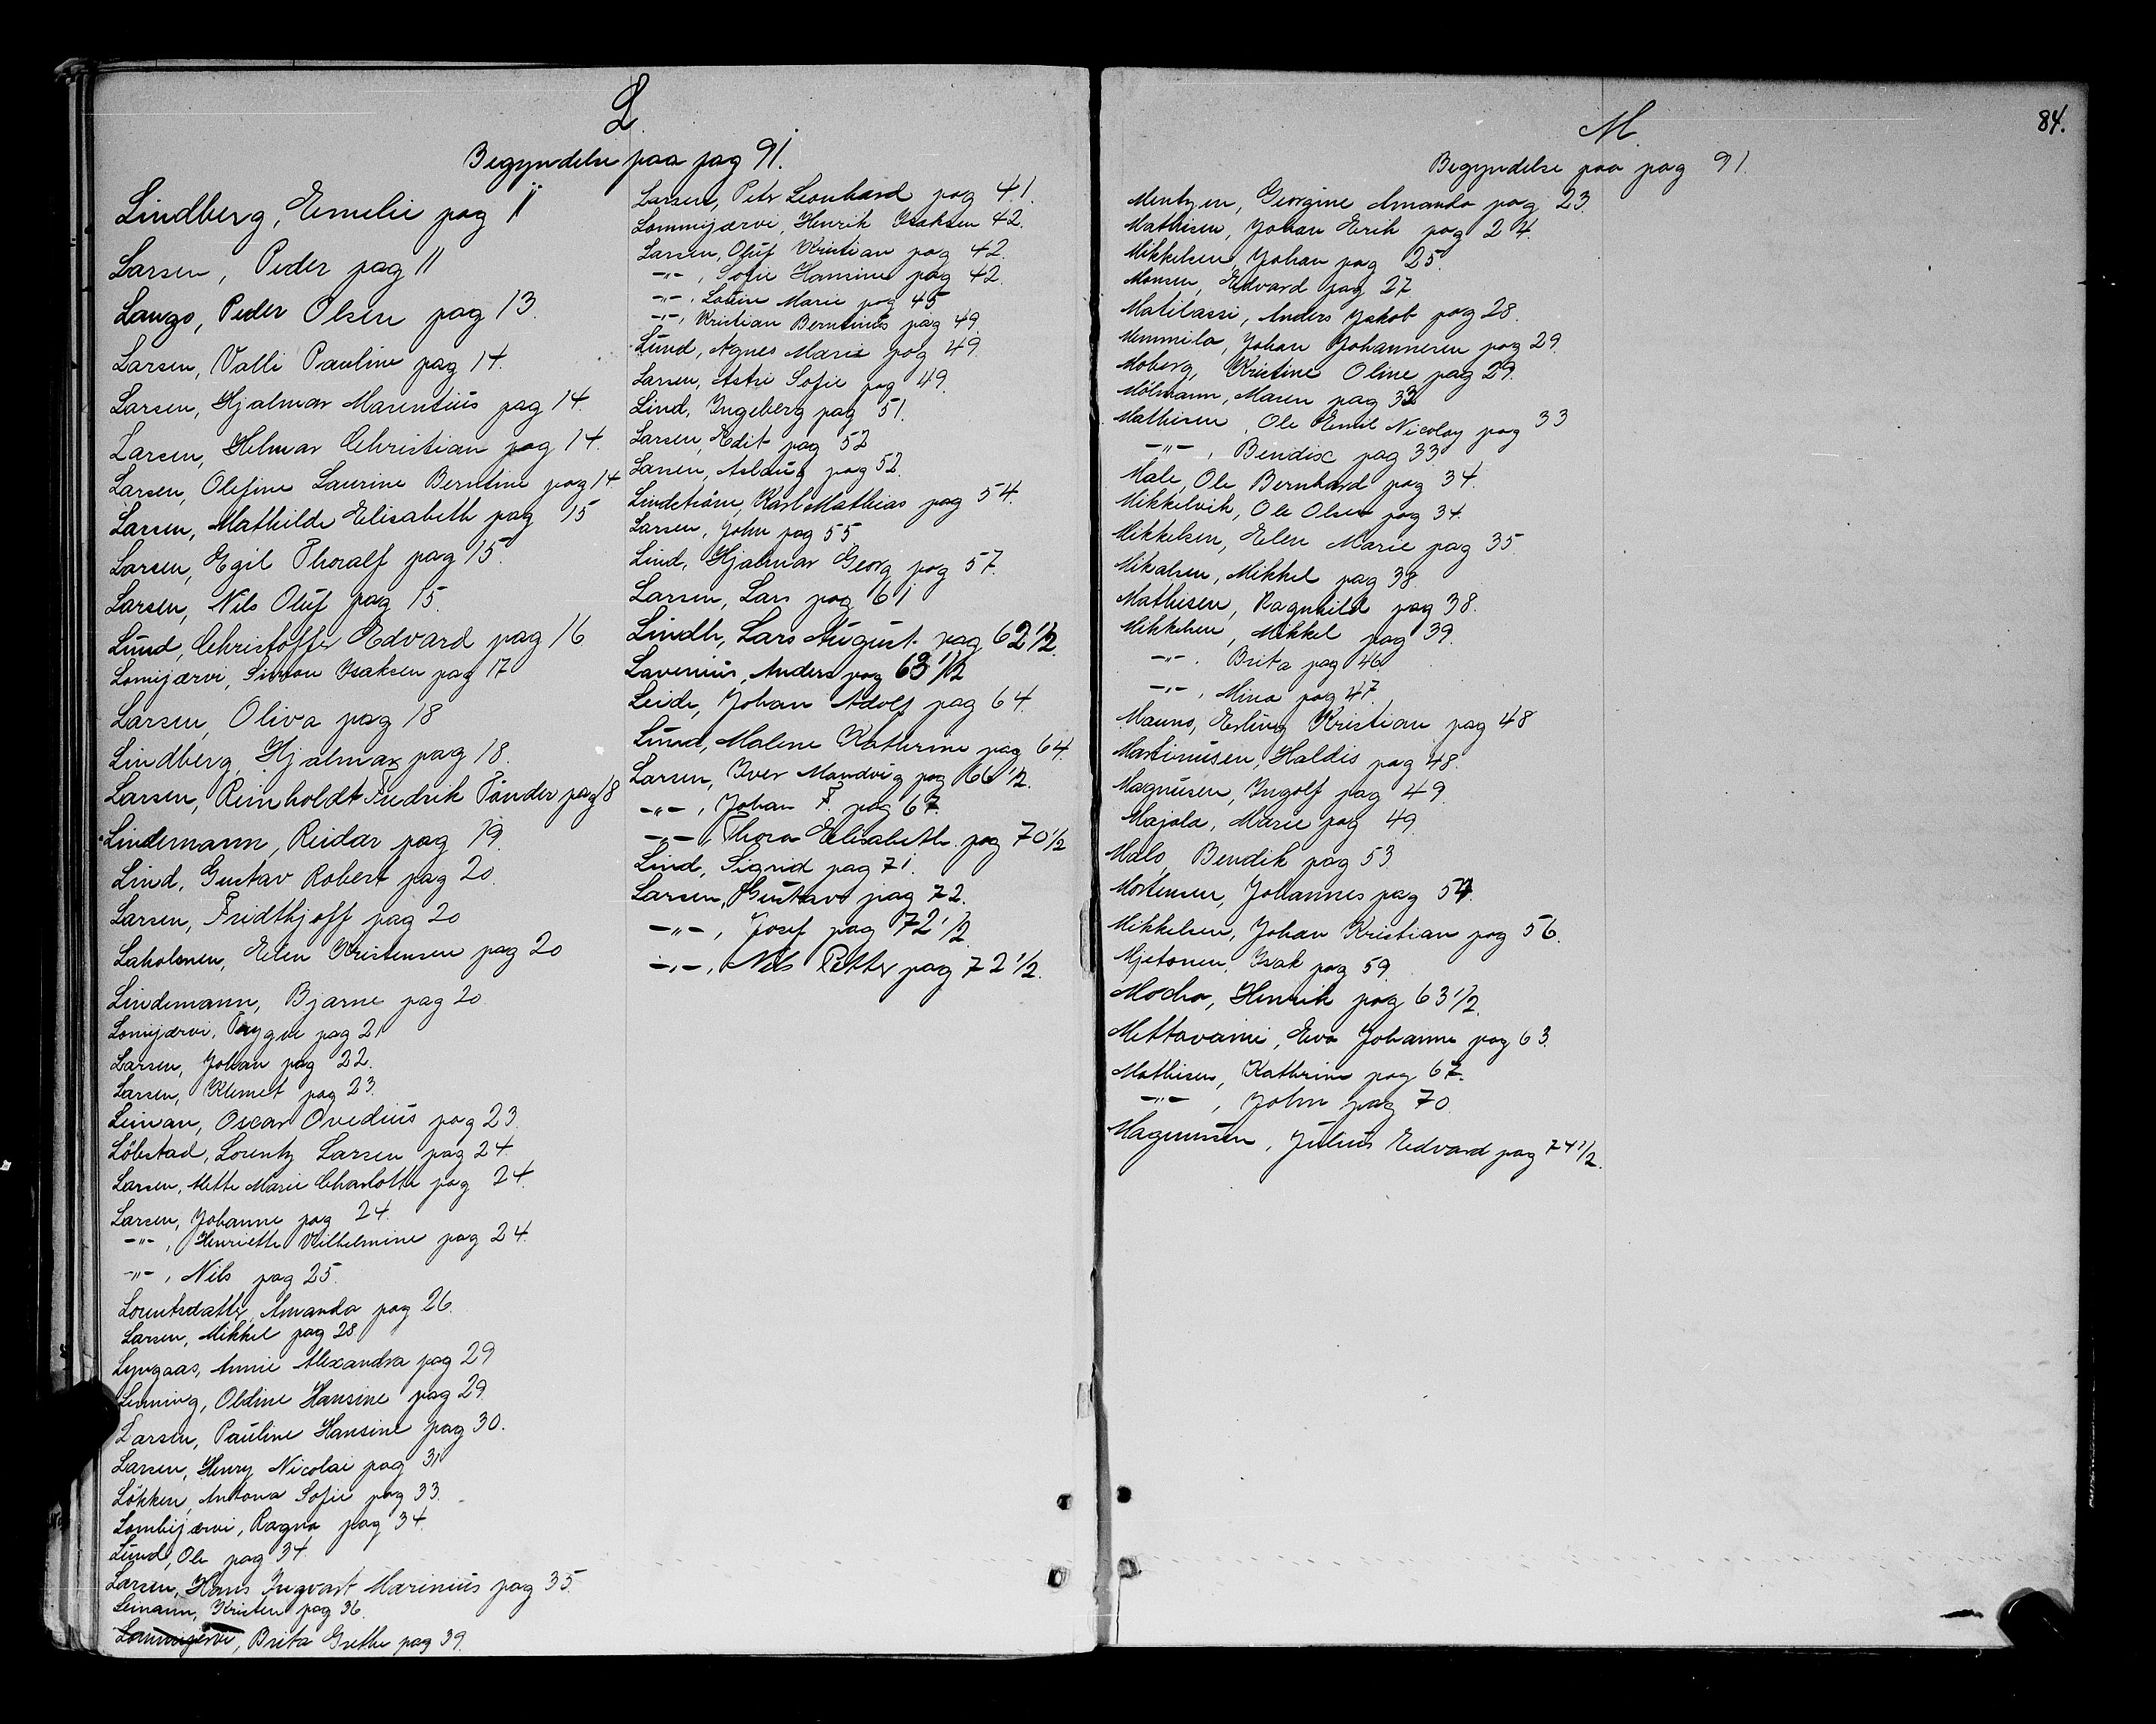 L.
Begyndelse paa pag 91.
Lindberg, Emelie pag 11
Larsen, Peder pag 11
Lango, Peder Olsen pag 13.
Larsen, Valli Pauline pag 14.
Larsen, Hjalmar Marentius pag 14.
Larsen, Helmar Christian pag 14.
Larsen, Olefine Laurine Berntine pag 14.
Larsen, Mathilde Elisabeth pag 15
Larsen, Egil Thoralf pag 15.
Larsen, Nils Oluf pag 15.
Lund, Christoffer Edvard pag 16
Lomijærvi, Simon Isaksen pag 17
Larsen, Oliva pag 18
Lindberg, Hjalmar pag 18.
Larsen, Reinholdt Fredrik Tønder pag 18
Lindemann, Reidar pag 19.
Lind, Gustav Robert pag 20.
Larsen, Fridthjoff pag 20
Laholonen, Elen Kristensen pag 20
Lindemann, Bjarne pag 20.
Lomijærvi, Trygve pag 21
Larsen, Johan pag 22.
Larsen, Klemet pag 23.
Leinan, Oscar Ovedius pag 23.
Löbstad, Lorentz Larsen pag 24.
Larsen, Mette Marie Charlotte pag 24.
Larsen, Johanne pag 24.
-"-, Henriette Vilhelmine pag 24.
-"-, Nils pag 25.
Lorentsdatter, Amanda pag 26.
Larsen, Mikkel pag 28
Lyngaas, Annie Alexandra pag 29
Lenning, Oldine Hansine pag 29.
Larsen, Pauline Hansine pag 30.
Larsen, Henry Nicolai pag 31
Lökken, Antona Sofie pag 33.
Lombijærvi, Ragna pag 34.
Lund, Ole pag 34.
Larsen, Hans Ingvart Marinius pag 35.
Leinann, Kristen pag 36.
Lommijærvi, Brita Grethe pag 39.
Larsen, Peter Leonhard pag 41.
Lommijærvi, Henrik Isaksen 42.
Larsen, Oluf Kristian pag 42.
-"-, Sofie Hansine pag 42.
-"-, Lovine Marie pag 45
-"-, Kristian Berntinus pag 49.
Lund, Agnes Marie pag 49.
Larsen, Astri Sofie pag 49.
Lind, Ingeberg pag 51.
Larsen, Edit pag 52
Larsen, Aslaug pag 52.
Lindström, Karl Mathias pag 54.
Larsen, John pag 55.
Lind, Hjalmar Georg pag 57.
Larsen, Lars pag 61
Lindh, Lars August pag 62 1/2.
Lavenius, Anders pag 63 1/2
Leide, Johan Adolf pag 64.
Lund, Malene Kathrine pag 64.
Larsen, Iver Mandvig pag 66 1/2.
-"-, Johan F. pag 67.
-"-, Thora Elisabeth pag 70 1/2
Lind, Sigrid pag 71.
Larsen, Gustav pag 72.
-"-, Josef pag 72 1/2
-"-, Nils Petter pag 72 1/2.
84.
M.
Begyndelse paa pag 91.
Mentzen, Georgine Amanda pag 23.
Mathisen, Johan Erik pag 24.
Mikkelsen, Johan pag 25.
Monsen, Edvard pag 27
Matilassi, Anders Jakob pag 28.
Memmila, Johan Johannesen pag 29.
Moberg, Kristine Oline pag 29.
Mölmann, Maren pag 32
Mathisen, Ole Emil Nicolay pag 33
-"-, Bendix pag 33
Male, Ole Bernhard pag 34.
Mikkelvik, Ole Olsen pag 34.
Mikkelsen, Elen Marie pag 35.
Mikalsen, Mikkel pag 38.
Mathisen, Ragnhild pag 38.
Mikkelsen, Mikkel pag 39.
-"-. Brita pag 46
-"-, Mina pag 47.
Mauno, Erling Kristian pag 48
Martinusen, Haldis pag 48.
Magnusen, Ingolf pag 49.
Majala, Marie pag 49.
Malo, Bendik pag 53.
Mortensen, Johannes pag 54.
Mikkelsen, Johan Kristian pag 56.
Mjetonen, Isak pag 59.
Mocha, Henrik pag 63 1/2.
Mettavanie, Eva Johanne pag 63.
Mathisen, Kathrine pag 67.
-"-, John pag 70.
Magnussen, Julius Edvard pag 74 1/2.